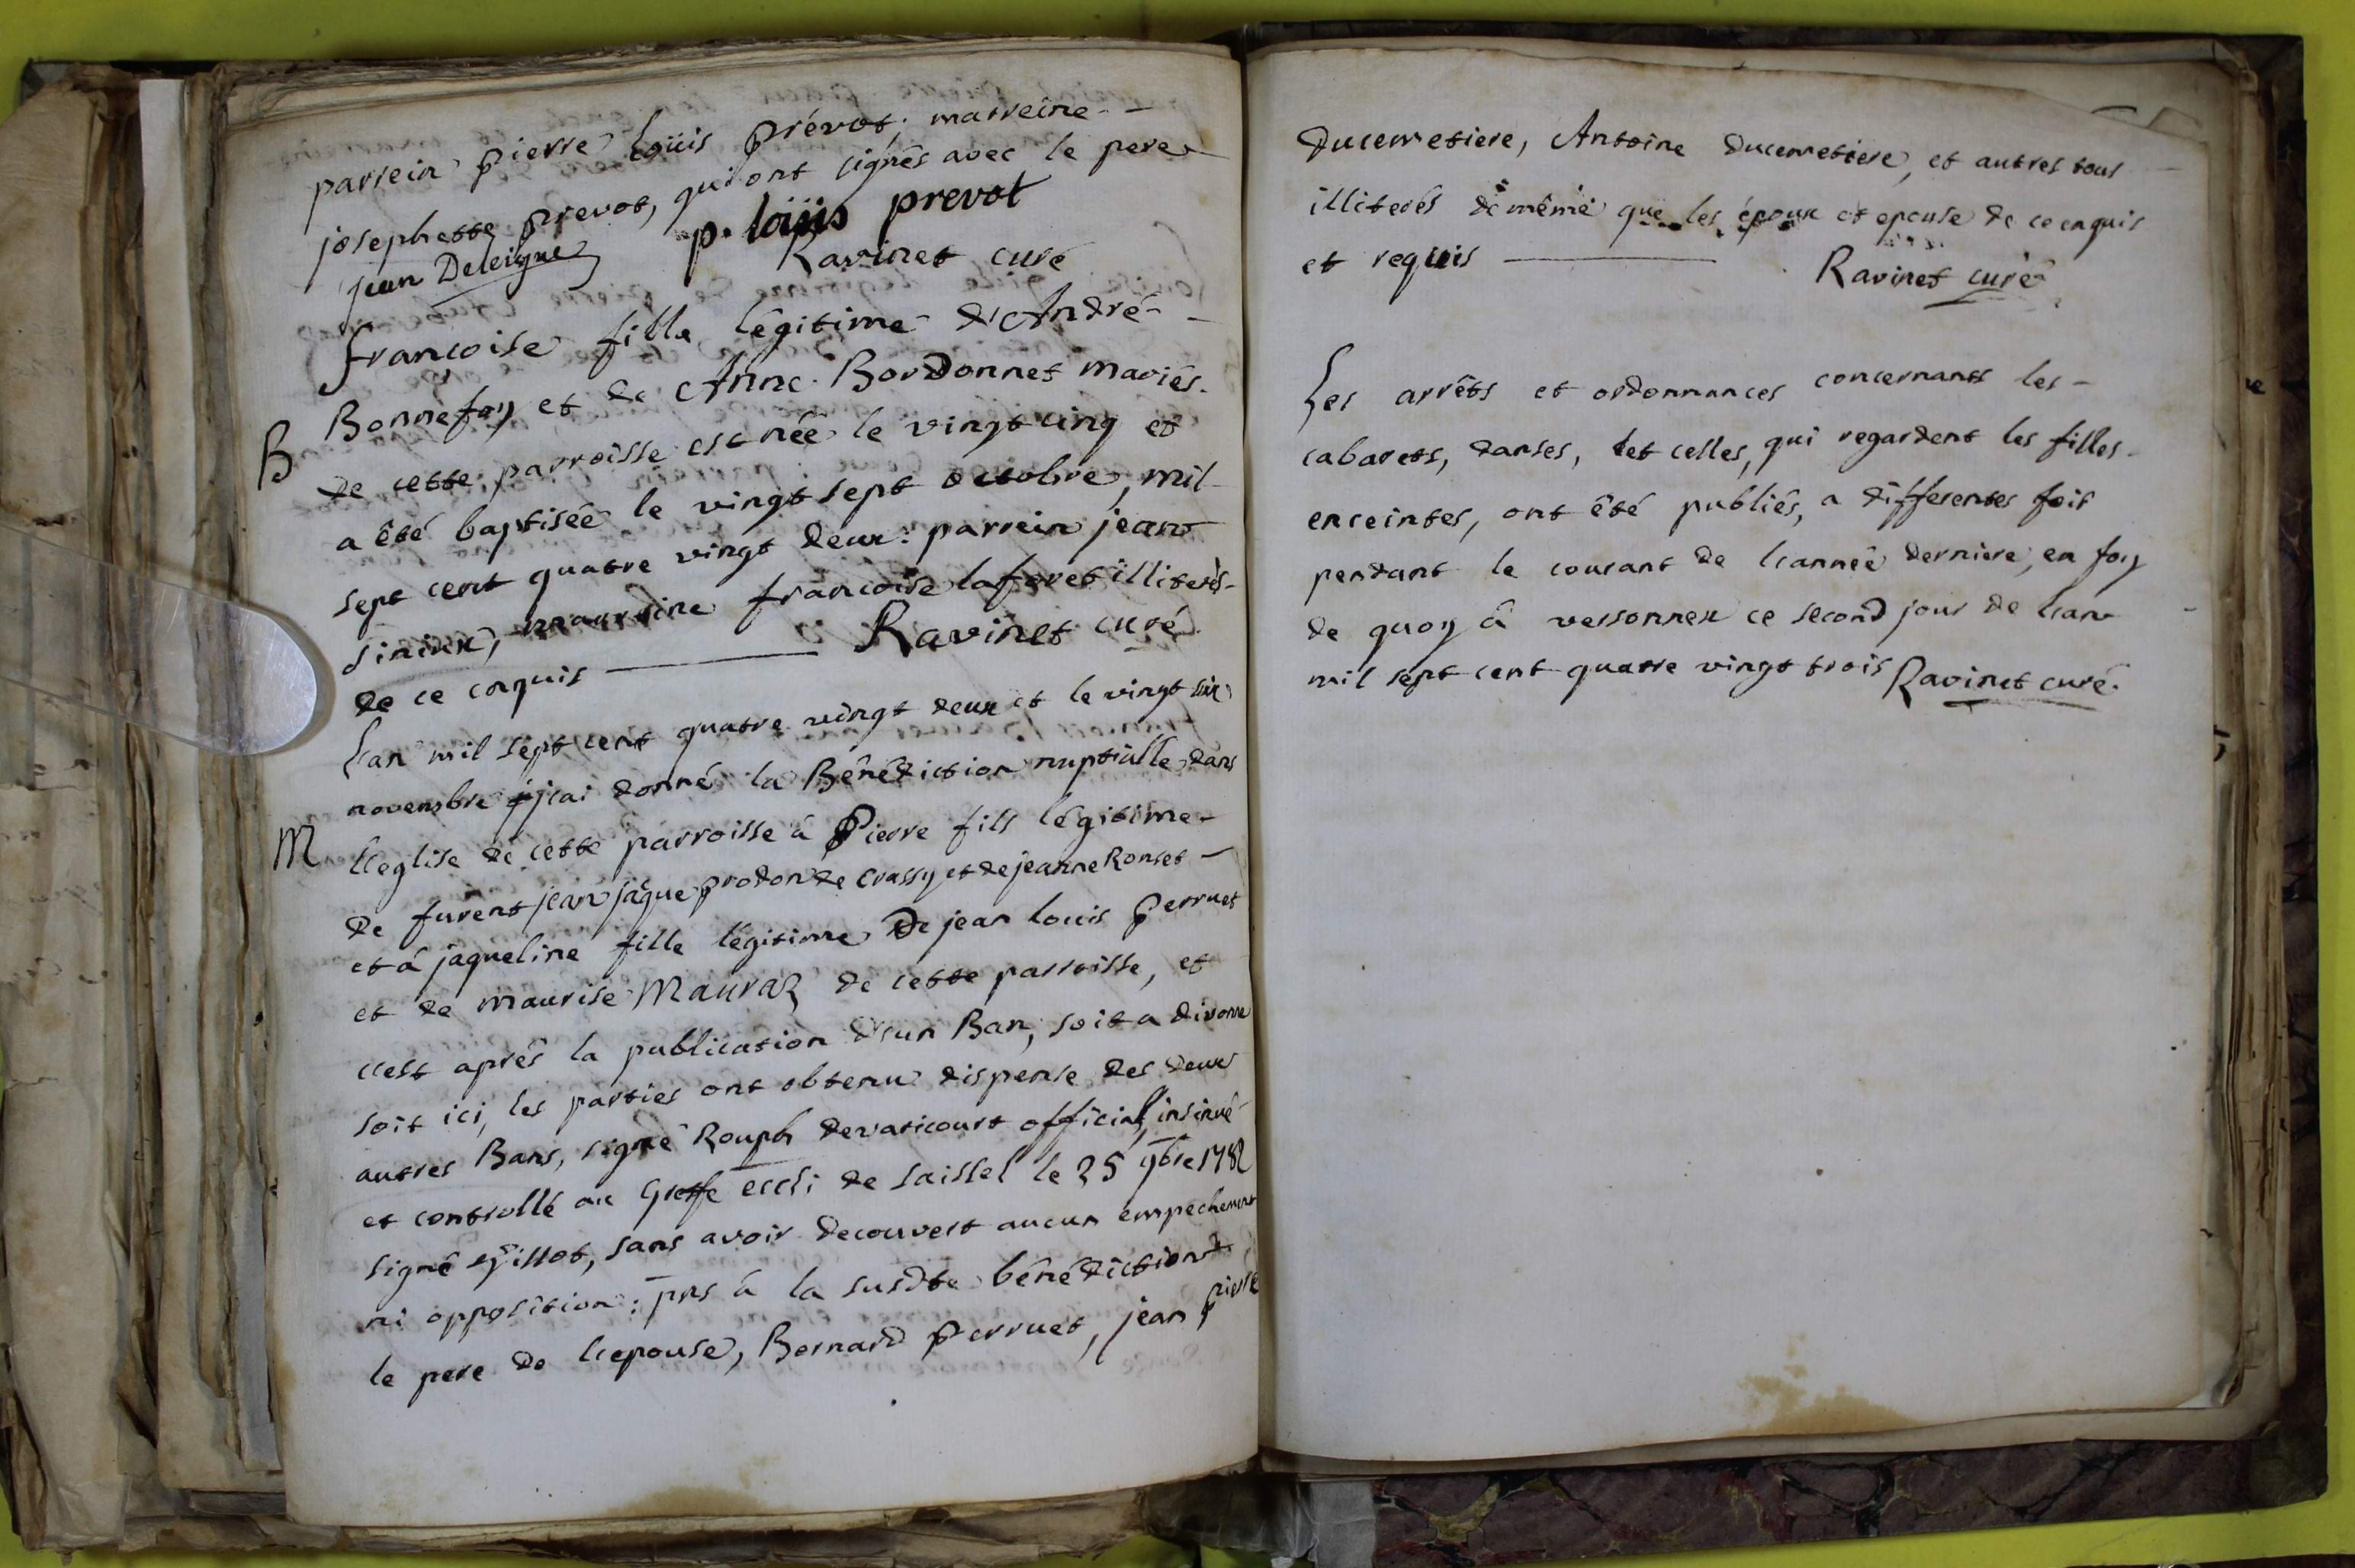 parrein pierre loüis prévot; marreine
josephette prevot, qui ont signés avec le pere
jean Deleigne p. loüis prevot
Ravinet curé
françoise fille légitime d'André
B Bonnefoy et de Anne Bordonnet mariés
de cette parroisse est née le vingt cinq et
a été baptisée le vingt sept octobre, mil
sept cent quatre vingt deux: parrein jean
marreine francoise laforet illiterés
de ce enquis Ravinet curé
L'an mil sept cent quatre vingt deux et le vingt six
novembre j'ai donné la Bénédiction nuptialle dans
M l'eglise de cette parroisse à Pierre fils légitime
de furent jean jaque prodon de Crassy et de jeanne Ronset
et à jaqueline fille légitime De jean louis perruet
et de maurise Mauraz de cette parroisse, et
c'est aprés la publication d'un Ban, soit a divonne
soit ici, les parties ont obtenu dispense des deux
autres Bans, signé Rouph devaricourt official, insinué
et controllé au Greffe eccli de saissel le 25 9bre 1782
signé sans avoir decouvert aucun empechement
ni opposition: pns à la susdte bénédiction
le pere de l'epouse, Bernard perruet, jean pierre
Ducemetiere, Antoine Ducemetiere, et autres tous
illiterés de même que les époux et epouse de ce enquis
et requis Ravinet curé
Les arrêts et ordonnances concernants les
cabarets, danses, et celles, qui regardent les filles
enceintes, ont été publiés, a differentes fois
pendant le courant de l'année derniere, en foy
de quoy à versonnex ce second jour de l'an
mil sept cent quatre vingt trois Ravinet curé.